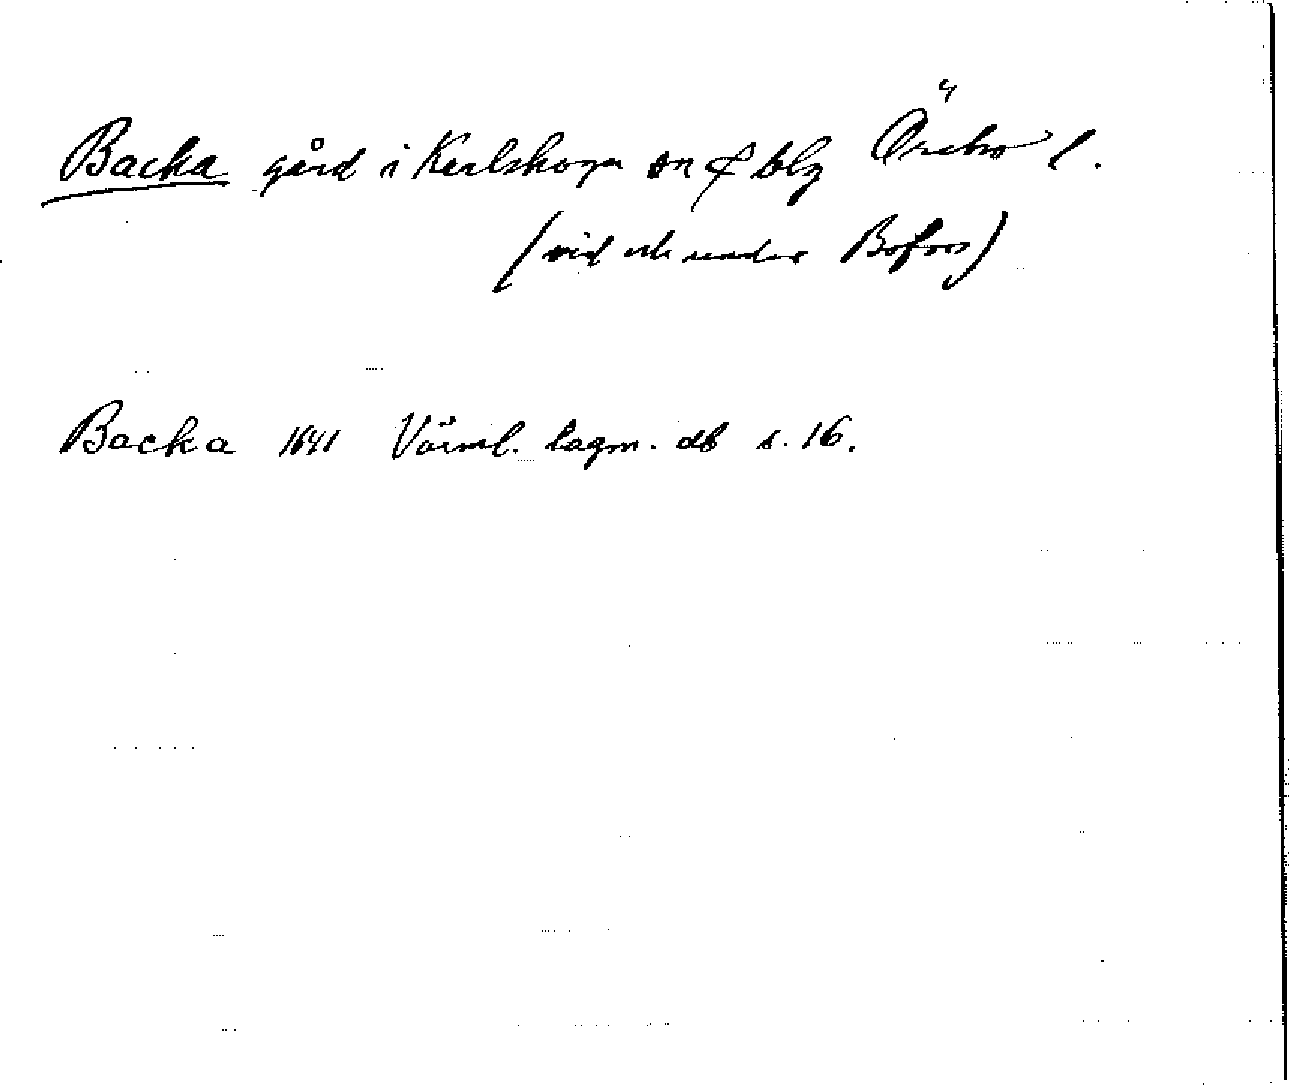 Backa gård i Karlskoga sn & blg Örebro l.
(vid och under Bofors)
Backa 1641 Värml. lagm. db s. 16.